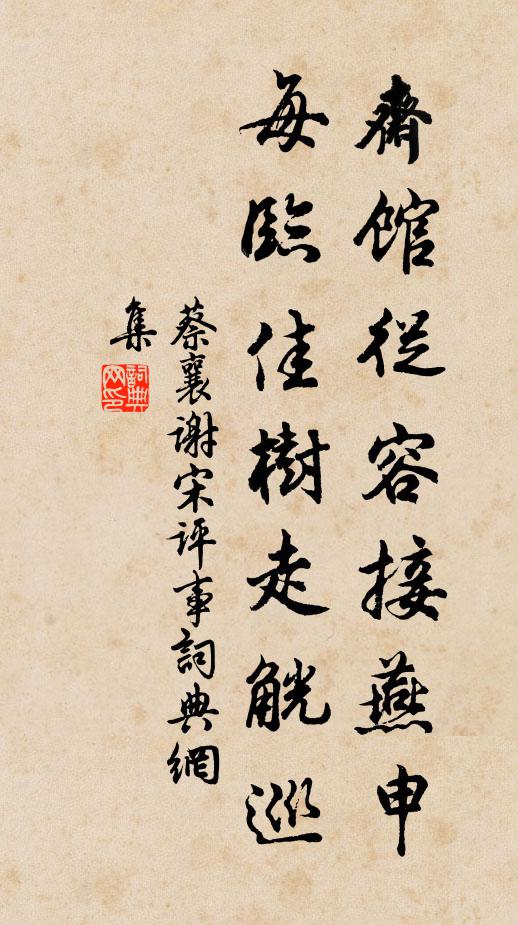 齋館從容接燕申
每臨佳樹走觥巡
蔡襄谢宋评事詞典網
集
詞典
网印